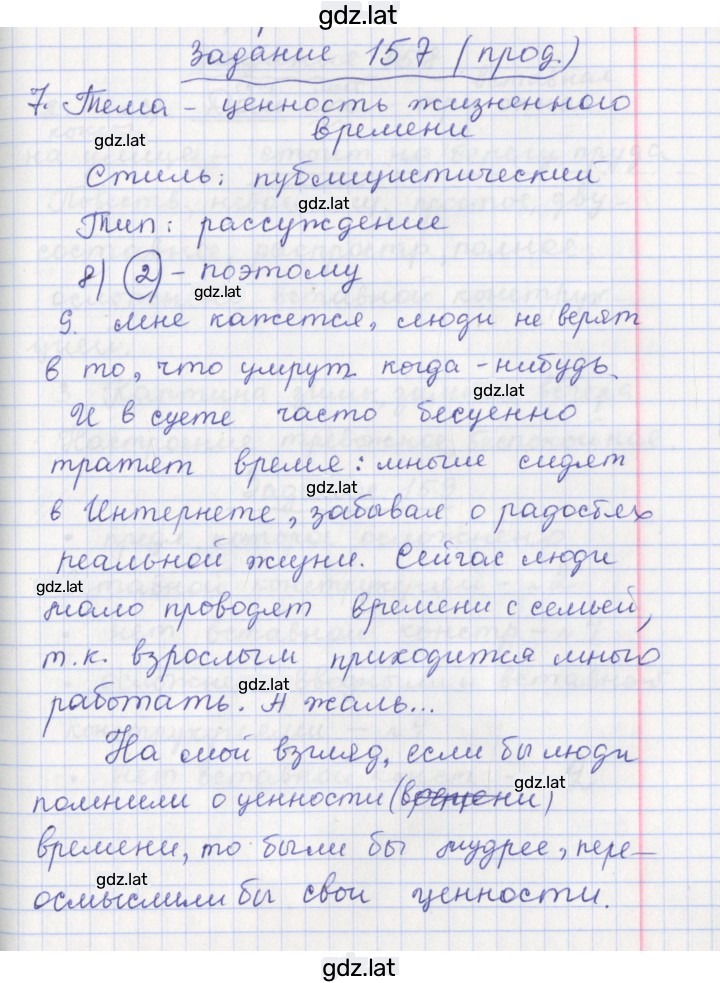 gdz.lat
Задание 157 (прод.)
7. Тема – ценность жизненного
времени
gdz.lat
Стиль: публицистический
gdz.lat
Тип: рассуждение
8) 2 – поэтому
gdz.lat
9. Мне кажется, люди не верят
в то, что умрут когда-нибудь.
gdz.lat
И в суете часто бесценно
тратят время: многие сидят
gdz.lat
в Интернете, забывая о радостях
реальной жизни. Сейчас люди
gdz.lat
мало проводят времени с семьей,
т.к. взрослым приходится много
gdz.lat
работать. А жаль...
На мой взгляд, если бы люди
gdz.lat
помнили о ценности (времени)
времени, то были бы мудрее, пере–
gdz.lat
осмыслили бы свои ценности.
gdz.lat